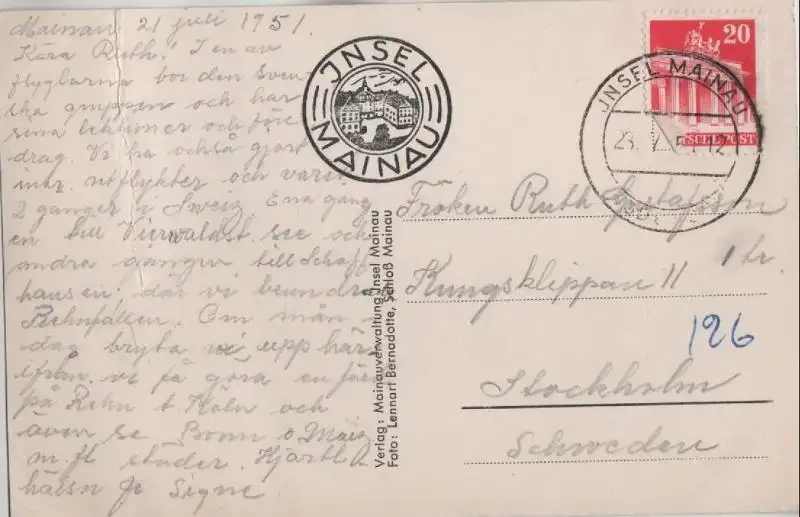 Mainau 21 juli 1951.
Kära Ruth! I en av
flyglarna bor den sven-
ska gruppen och har
sina lektioner och före-
drag. Vi ha också gjort
intr. utflykter och varit
2 gånger i Sweiz. Ena gång
en till Vierwaldst. see och
andra gången till Schaff
hausen, där vi beundra
Rehnfallen. Om mån-
dag bryta vi upp här
ifrån. vi få göra en färd
på Rehn t. Köln och
även se Bonn o Mainz
m. fl städer. Hjärtl
hälsn fr Signe
JNSEL
MAINAU
Verlag: Mainauverwaltung Jnsel Mainau
Foto: Lennart Bernadotte, Schloß Mainau
20
JNSEL MAINAU
23. 12
POST
Fröken Ruth Gustafson
Kungsklippan 11 1 tr.
126
Stockholm
Schweden